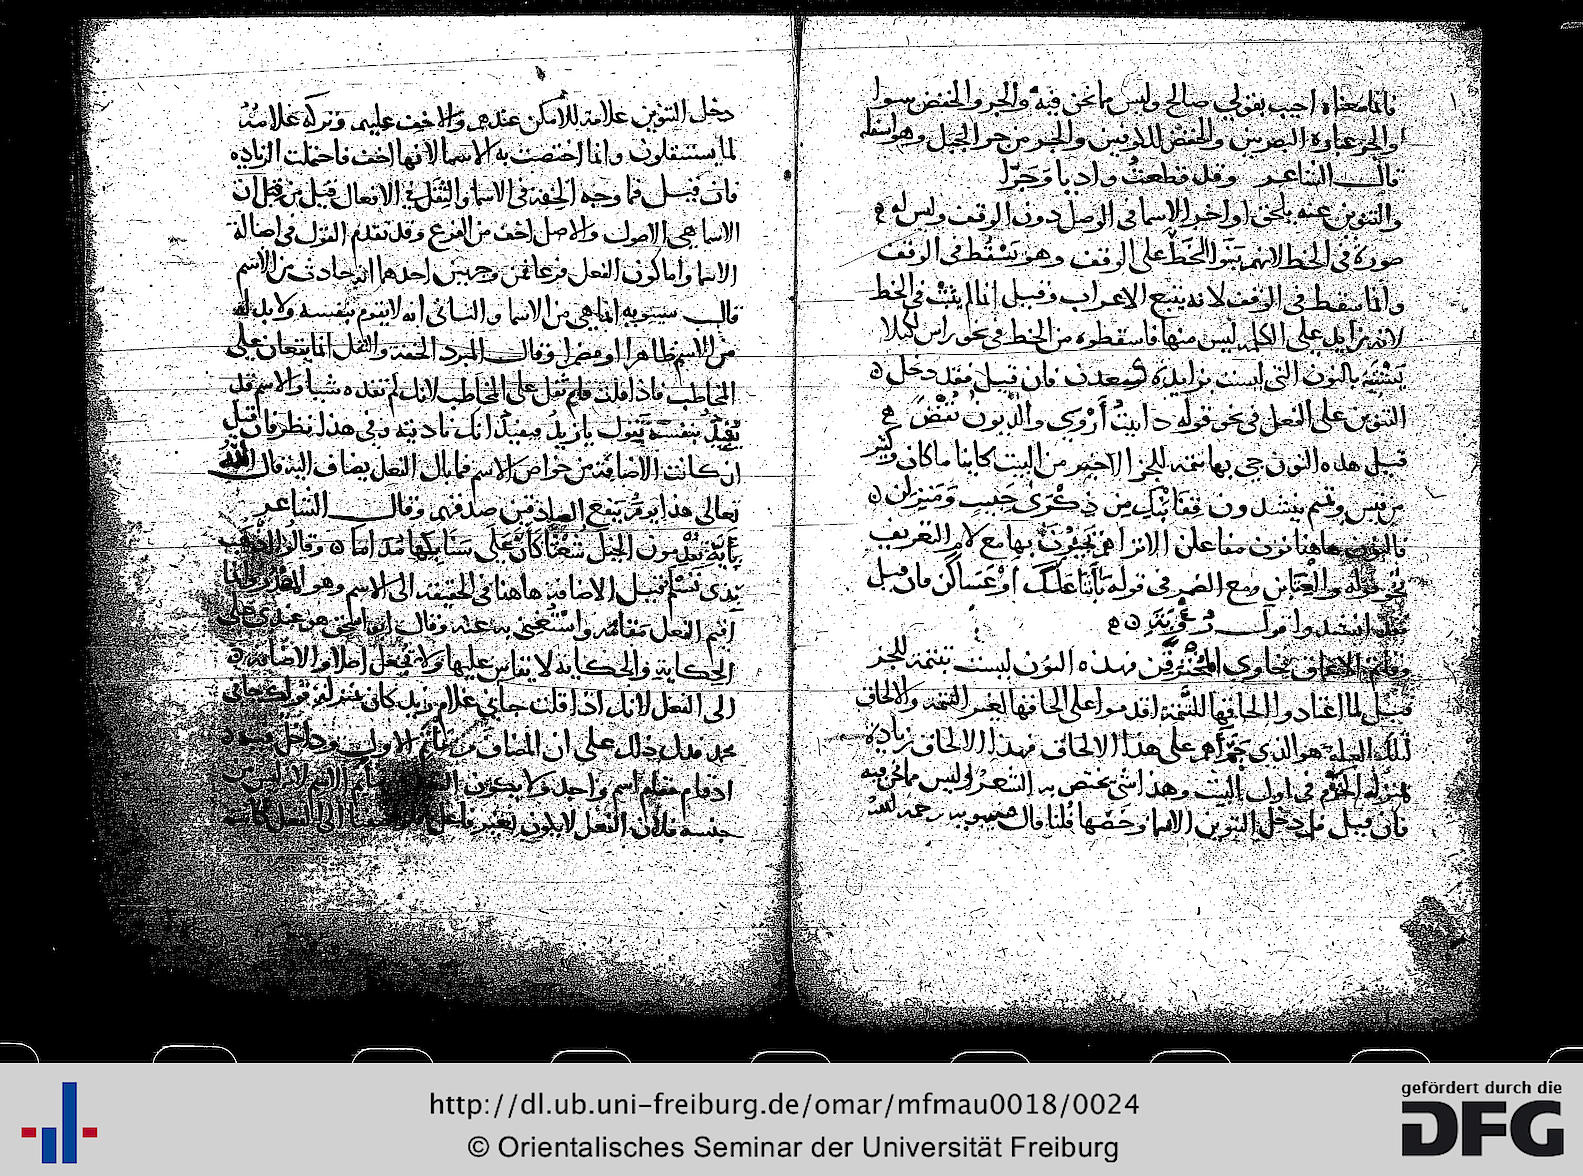 فانما معناه احب بقولي صالح وليس مما نحن فيه والجر والخفض سوا
والجر عبارة البصريين والخفض للكوفيين والجر من جر الجبل وهو اسفله
قال الشاعر وقد قطعت واديا وجرا
والتنوين عنه يلحق اواخر الاسما في الوصل دون الوقف وليس له
صورة في الخط لانهم بنوا الخط على الوقف وهو يسقط في الوقف
وانما سقط في الوقف لانه يتبع الاعراب وقيل انما لم يثبت في الخط
لانه زايد على الكلمه ليس منها فاسقطوه من الخط في نحو راس لئلا
يشتبه بالنون التي ليست بزايدة فان قيل فقد دخل
التنوين على الفعل في نحو قوله داينت أروى والديون تقضن
قيل هذه النون جي بها تتمه للجز الاخير من البيت كاينا ما كان وكثير
من قيس وتميم ينشدون قفا نبك من ذكرى حبيب ومنزلن
فالنون هاهنا نون مفاعلن الا ترا هم يجيزون بها مع لام التعريف
نحو قوله والعتابن ومع الضمير في قوله يا أبتا علك أو عساكن فان قيل
فقد انشدوا قول رؤبة
وقاتم الاعماق خاوي المخترقن فهذه النون ليست تتمة للجز
قيل لما اعتادوا الحاقها للتتمة اقدموا على الحاقها لغير التتمه والالحاق
لتلك العله هو الذي جرأهم على هذا الالحاق فهذا الالحاق زيادة
بمنزلة الخزم في اول البيت وهذا شي يختص به الشعر وليس مما نحن فيه
فان قيل فلم دخل التنوين الاسما وخصها قلنا قال سيبويه رحمه الله
دخل التنوين علامة للامكن عندهم والاخف عليهم وتركه علامة
لما يستثقلون وانما اختصت به الاسما لانها اخف فاحتملت الزياده
فان قيل فما وجه الخفة في الاسما والثقل في الافعال قيل من قبل ان
الاسما هي الاصول والاصل اخف من الفرع وقد تقدم القول في اصالة
الاسما واما كون الفعل فرعا فمن وجهين احدهما انه حادث من الاسم
قال سيبويه انما هي من الاسما والثاني انه لا يقوم بنفسه ولا بد له
من الاسم ظاهرا او مضمرا وقال المبرد الخفة والثقل انما يقعان على
المخاطب فاذا قلت قام ثقل على المخاطب لانك لم تفده شيا والاسم قد
يفيد بنفسه تقول يا زيد فيفيد انك ناديته وفي هذا نظر فان قيل
ان كانت الاضافة من خواص الاسم فما بال الفعل يضاف اليه قال الله
تعالى هذا يوم ينفع الصادقين صدقهم وقال الشاعر
بآية تقدمون الخيل شعثا كأن على سنابكها مداما وقالوا اذهب
بذي تسلم قيل الاضافة هاهنا في الحقيقة الى الاسم وهو المصدر وانما
اقيم الفعل مقامه واستغني به عنه وقال ابو اسحق هو عندي على
الحكاية والحكاية لا يقاس عليها ولا تجعل اصلا والاضافة
الى الفعل لانك اذا قلت جاني غلام زيد كان بمنزلة قولك جاني
محمد فدل ذلك على ان المضاف من تمام الاول وداخل فيه
اذ قام مقام اسم واحد ولا يكون الفعل تمام الاسم لانه ليس من
جنسه فلان الفعل لا يكون لغير فاعل الى الفعل كانت
http://dl.ub.uni-freiburg.de/omar/mfmau0018/0024
© Orientalisches Seminar der Universität Freiburg
gefördert durch die
DFG